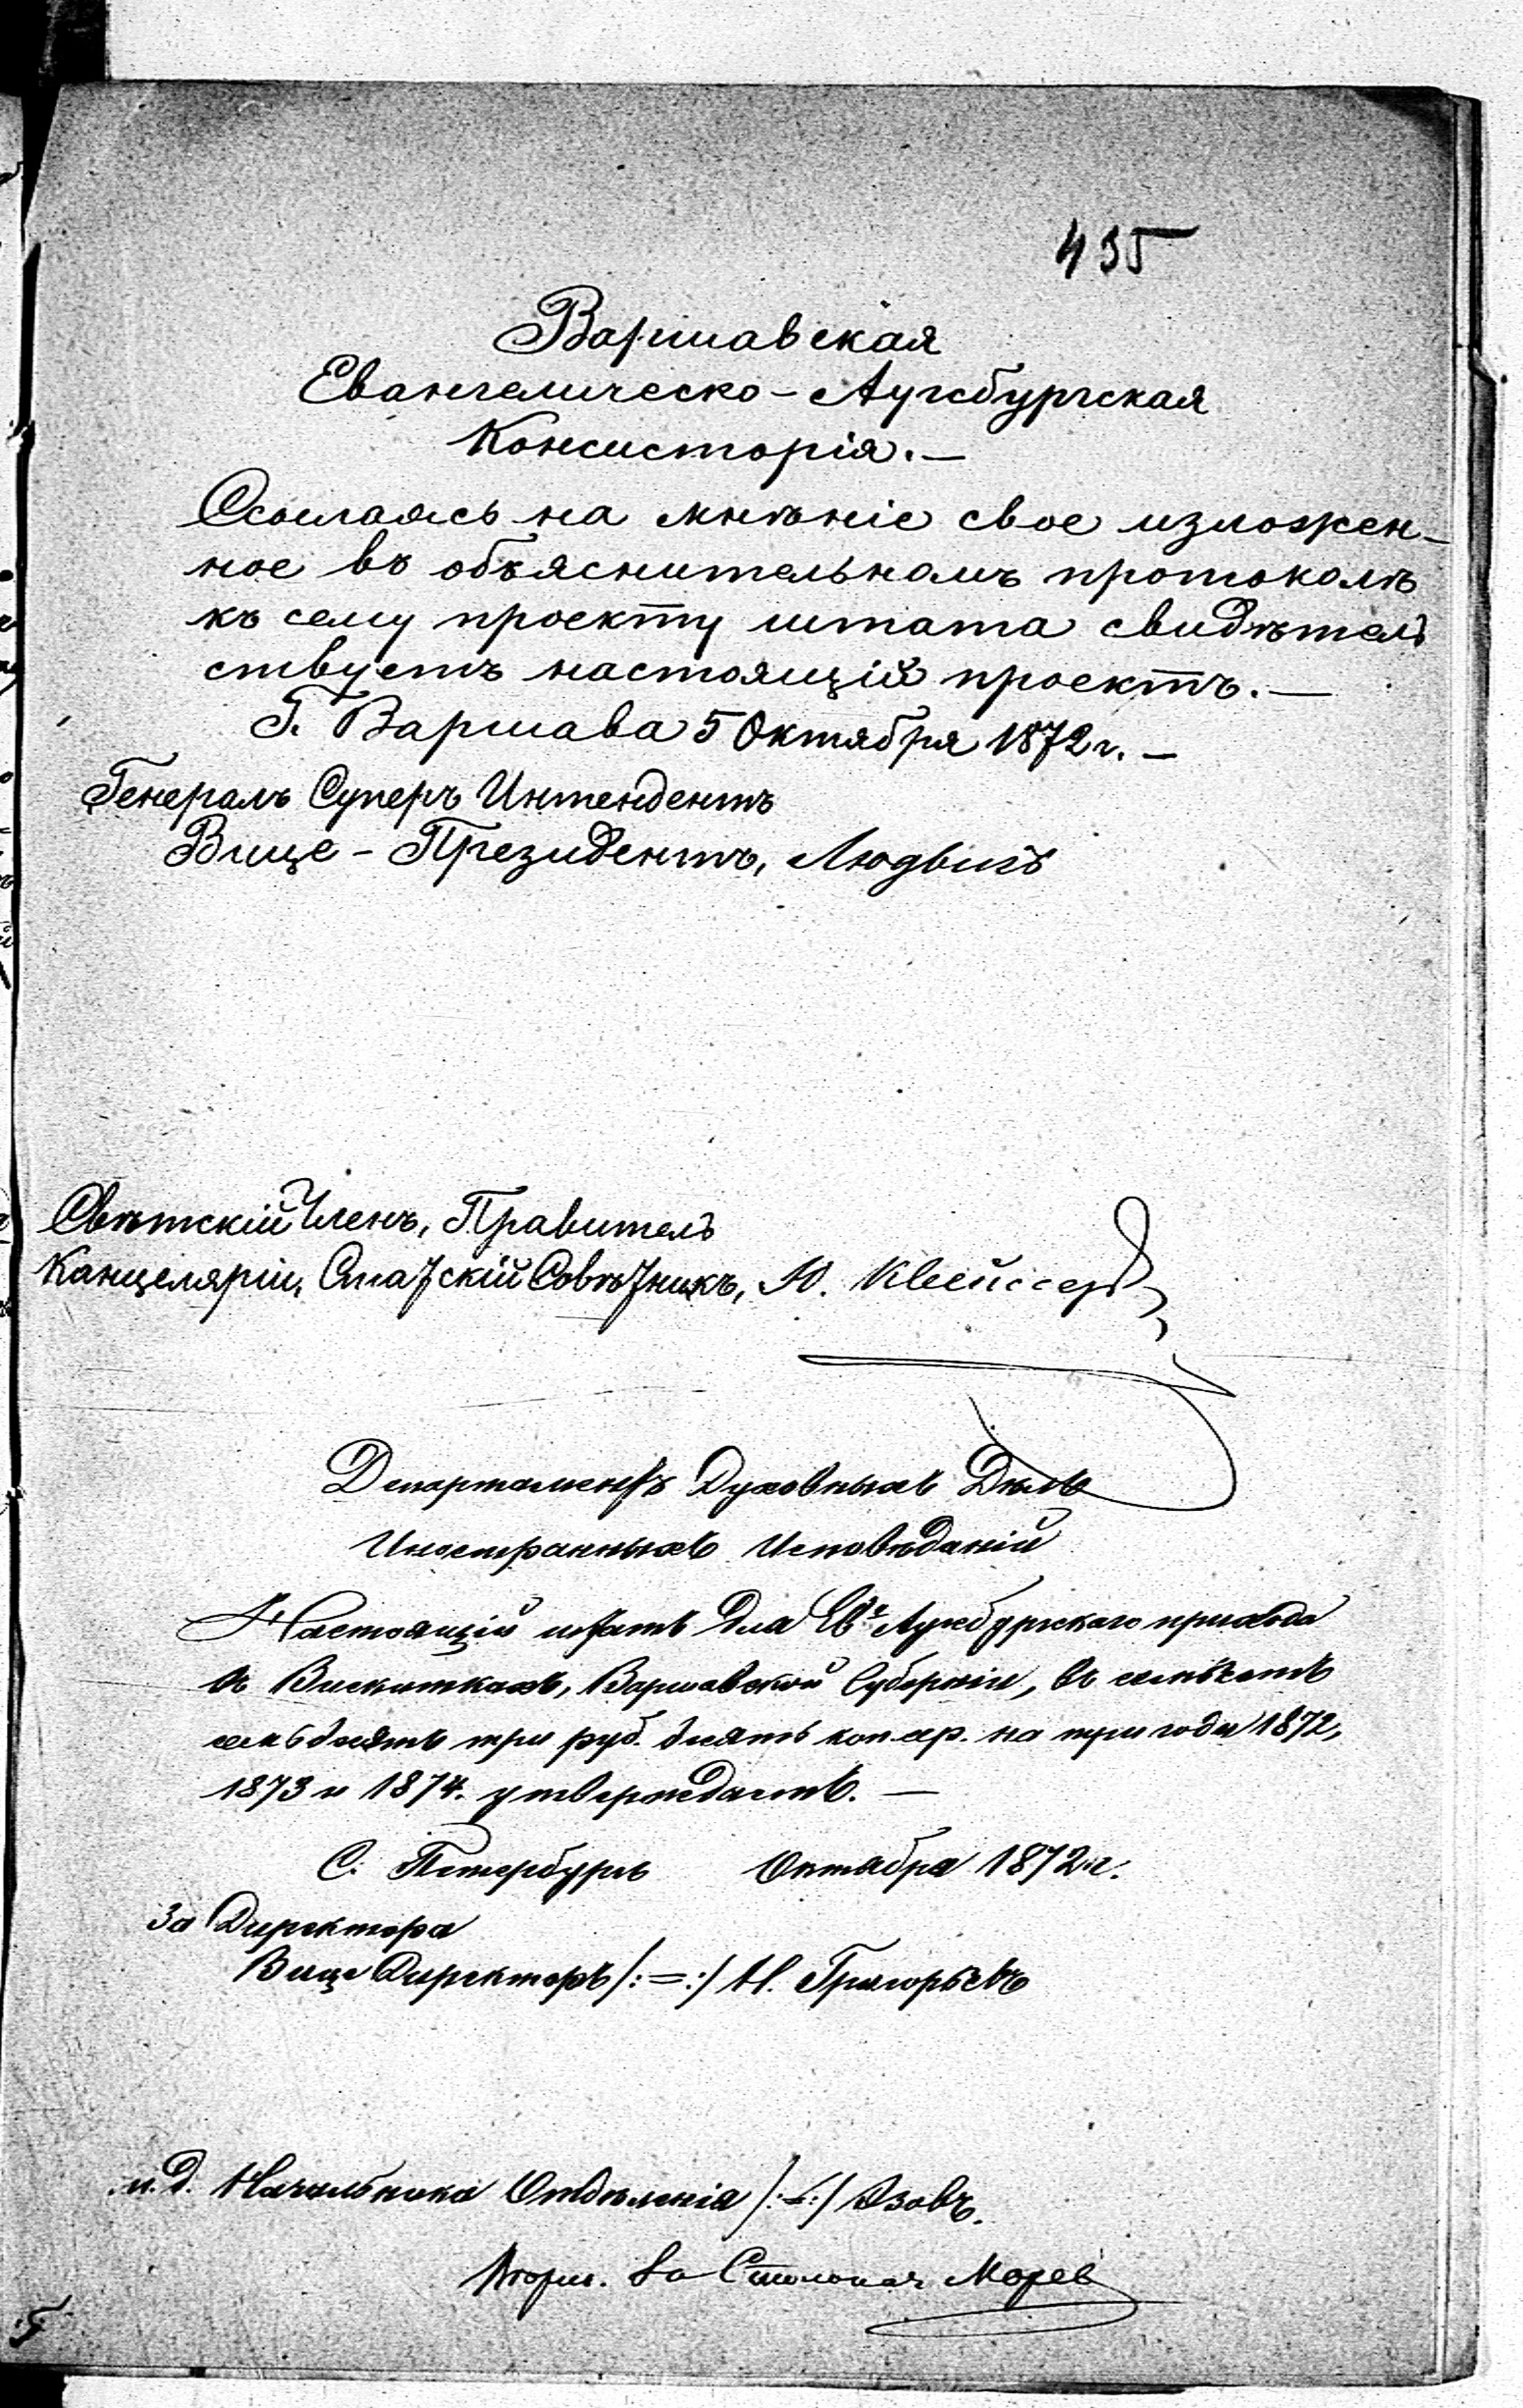 435
Варшавская
Евангелическо-Аугсбургская
Консисторія.—
Ссылаясь на мнѣніе свое изложен-
ное въ объяснительномъ протоколѣ
къ сему проекту штата свидѣтель
ствуетъ настоящій проектъ.—
Г. Варшава 5 Октября 1872 г.—
Генералъ Суперъ Интендентъ
Вице-Президентъ, Людвигъ
Свѣтскій Членъ, Правитель
Канцеляріи, Статскій Совѣтникъ, Ю.
Департаментъ Духовныхъ Дѣлъ
Иностранныхъ Исповѣданій
Настоящій штатъ для Ев. Аугсбургскаго прихода
въ Вискиткахъ, Варшавской Губерніи, въ семьсотъ
семьдесятъ три руб. десять коп. сер. на три года 1872,
1873 и 1874. утверждаетъ.—
С. Петербургъ Октября 1872 г.
За Директора
Вице Директоръ /:=:/ Н. Григорьевъ
и. д. Начальника Отдѣленія /:=:/ Озовъ.
За Столонач.